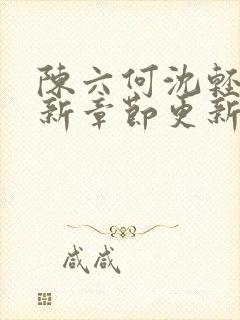 陳六何沈輕
新章節更新
咸咸